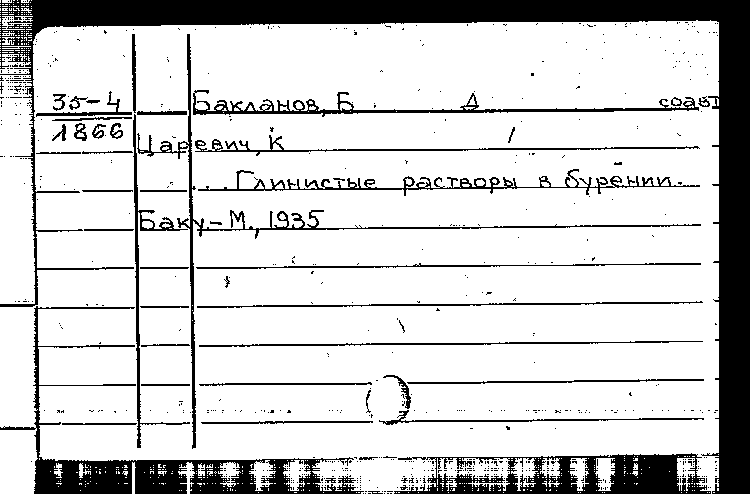 35-4 Бакланов, Б Д соавт
1866
Царевич, К
... Глинистые растворы в бурении.
Баку.- М., 1935